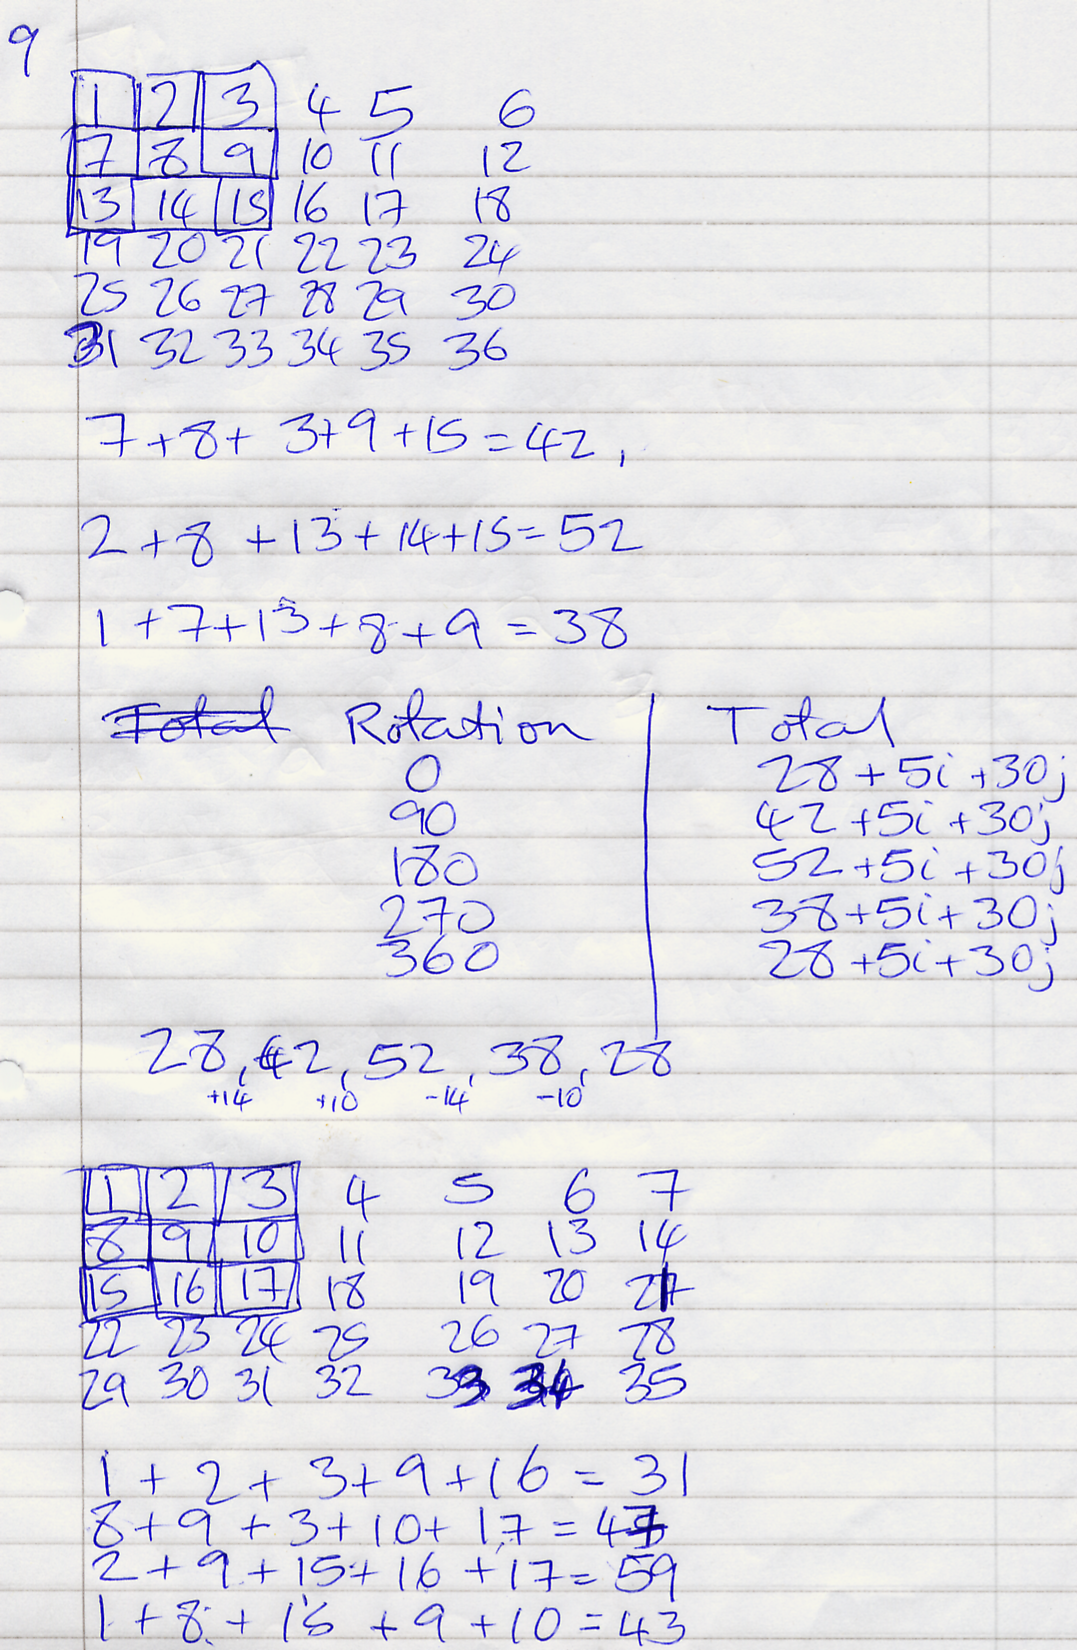 9
1 2 3 4 5 6
7 8 9 10 11 12
13 14 15 16 17 18
19 20 21 22 23 24
25 26 27 28 29 30
31 32 33 34 35 36
7+8+ 3+9+15=42,
2+8+13+14+15=52
1+7+13+8+9=38
Total Rotation Total
0 28+5i+30j
90 42+5i+30j
180 52+5i+30j
270 38+5i+30j
360 28+5i+30j
28, 42, 52, 38, 28
+14 +10 -14 -10
1 2 3 4 5 6 7
8 9 10 11 12 13 14
15 16 17 18 19 20 21
22 23 24 25 26 27 28
29 30 31 32 33 34 35
1+2+3+9+16=31
8+9+3+10+17=47
2+9+15+16+17=59
1+8+15+9+10=43